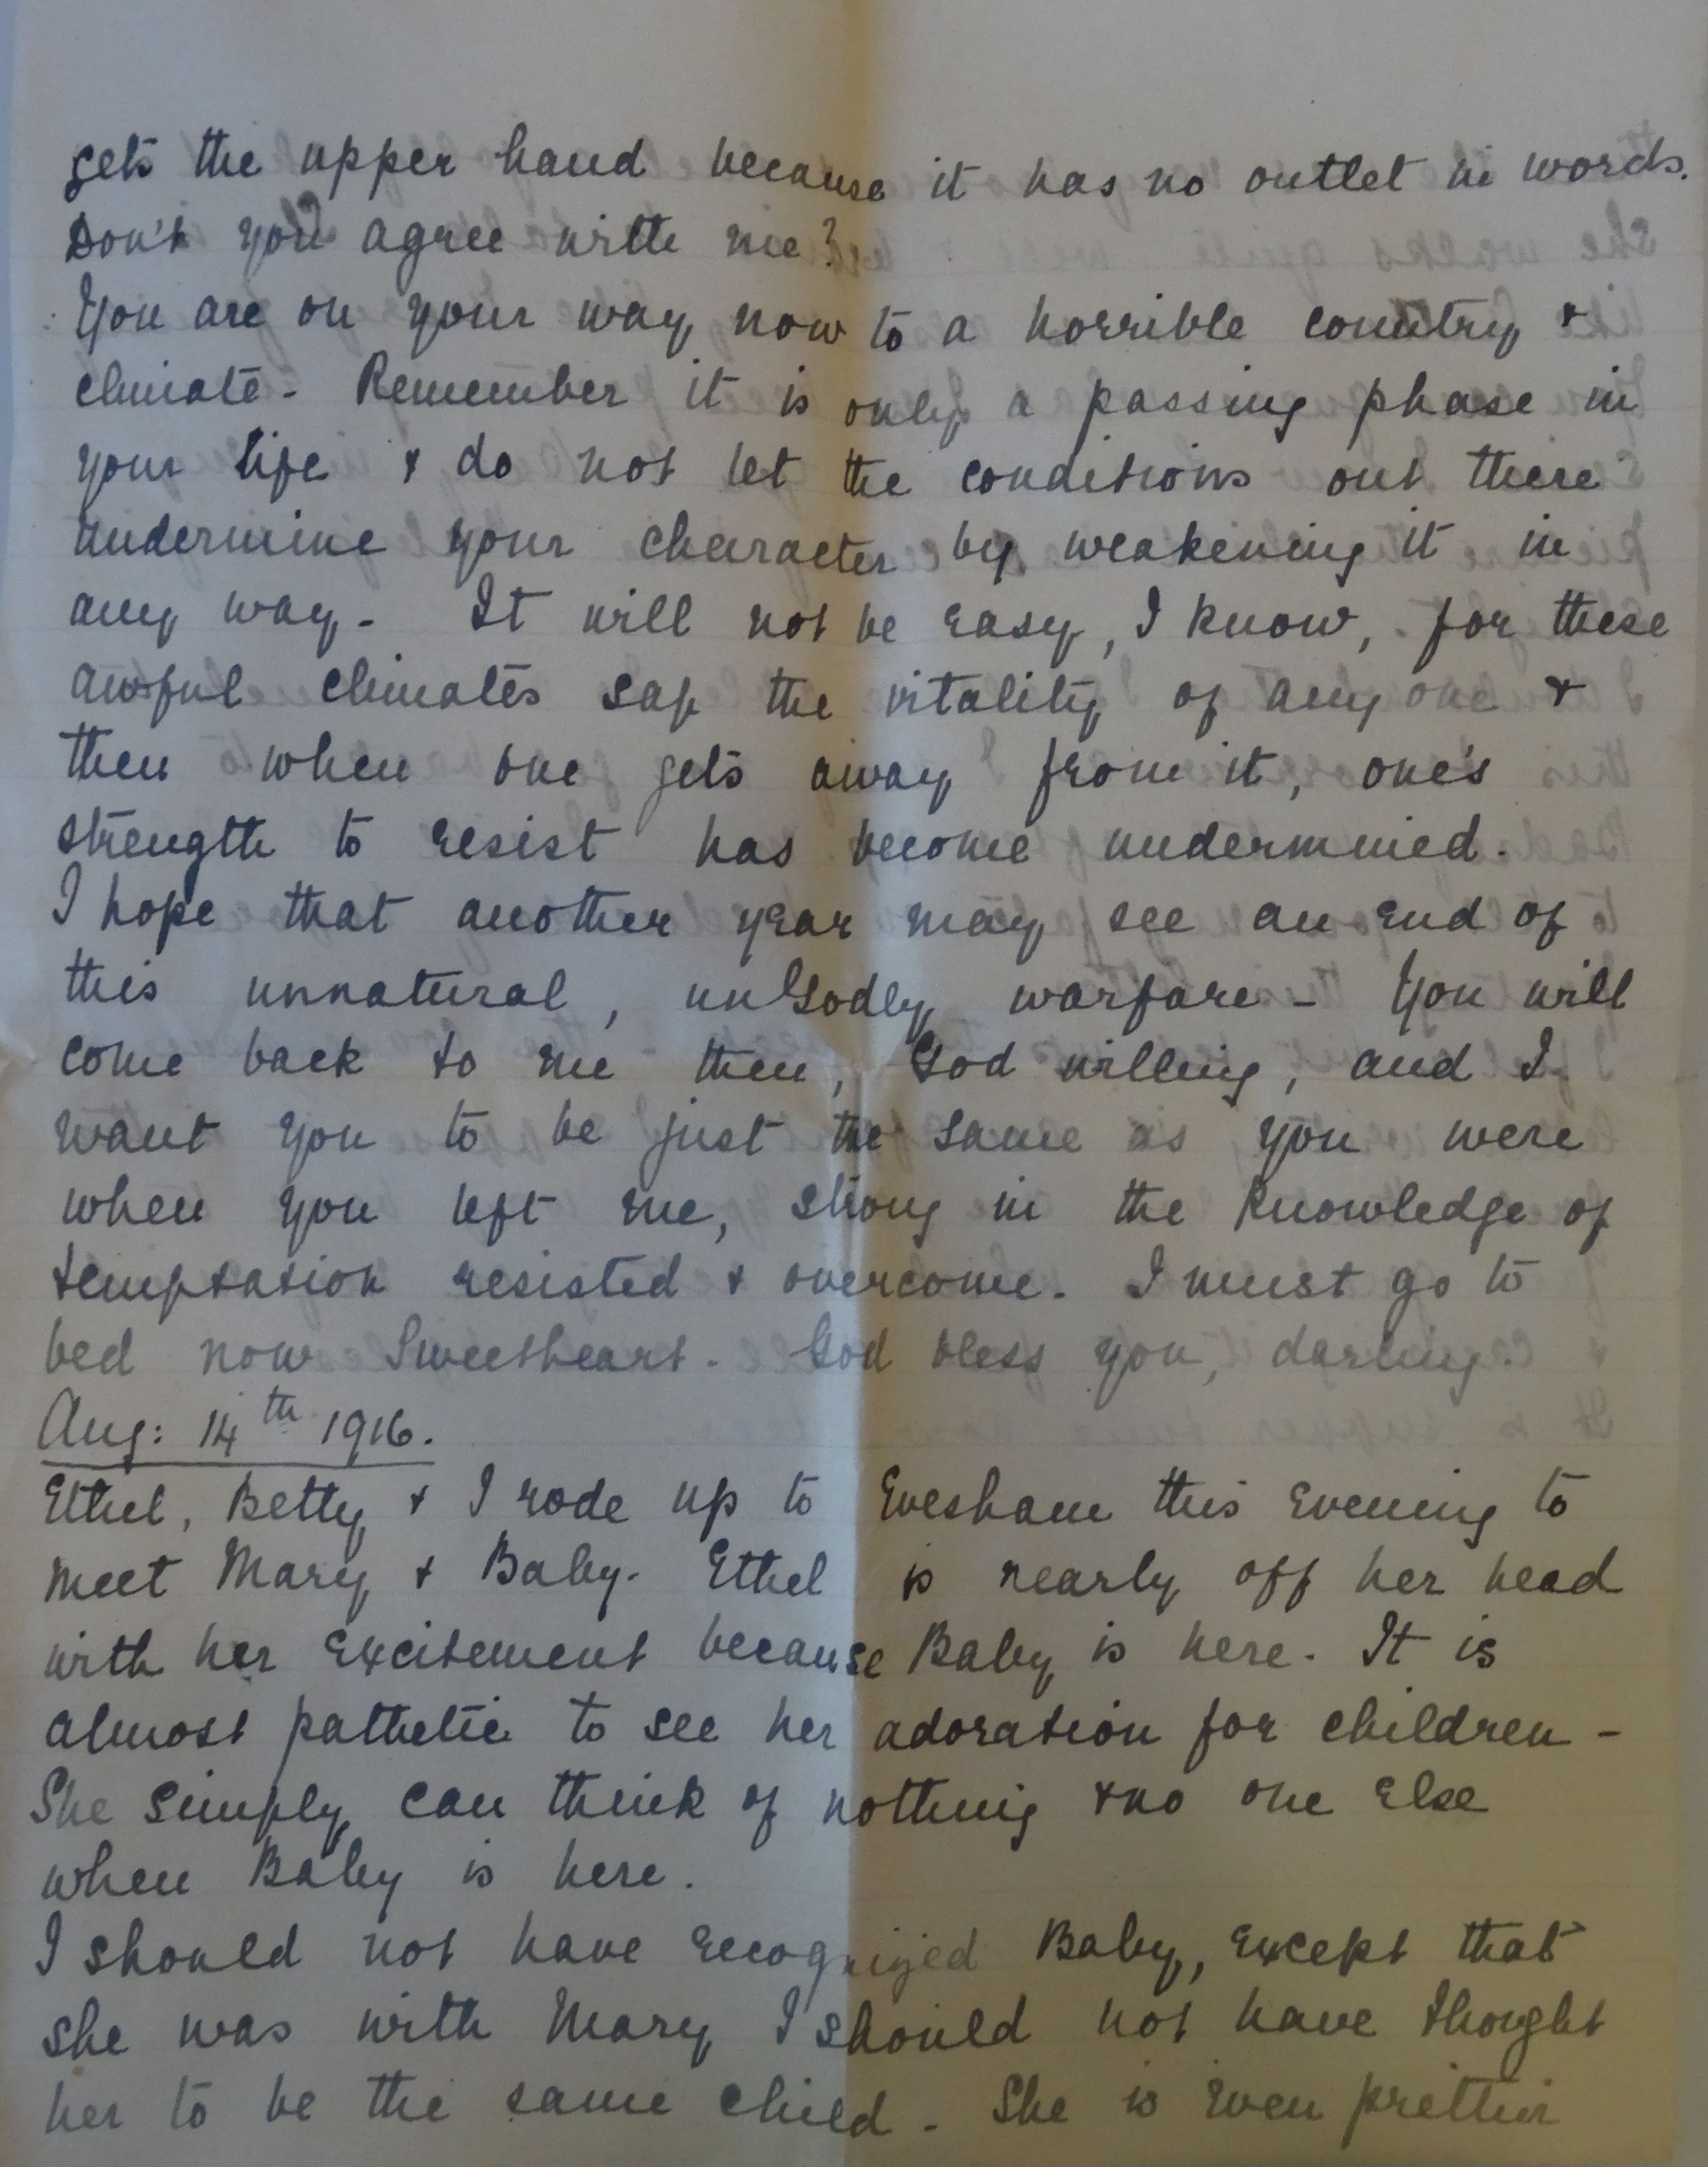 gets the upper hand because it has no outlet in words.
Don't you agree with me?
You are on your way now to a horrible country &
climate - Remember it is only a passing phase in
your life & do not let the conditions out there
undermine your character by weakening it in
any way - It will not be easy, I know, for these
awful climates sap the vitality of any one &
then when one gets away from it, one's
strength to resist has become undermined.
I hope that another year may see an end of
this unnatural, unGodly warfare - You will
come back to me then, God willing, and I
want you to be just the same as you were
when you left me, strong in the knowledge of
temptation resisted & overcome. I must go to
bed now Sweetheart. God bless you, darling.
Aug: 14th 1916.
Ethel, Betty & I rode up to Evesham this evening to
meet Mary & Baby. Ethel is nearly off her head
with her excitement because Baby is here. It is
almost pathetic to see her adoration for children -
She simply can think of nothing & no one else
when Baby is here.
I should not have recognized Baby, except that
she was with Mary I should not have thought
her to be the same child - She is even prettier